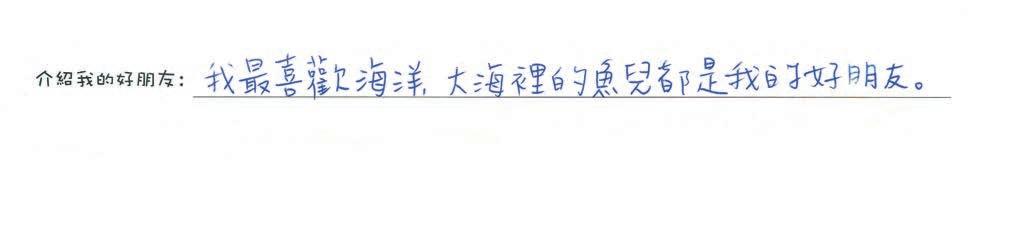 介紹我的好朋友：我最喜歡海洋，大海裡的魚兒都是我的好朋友。